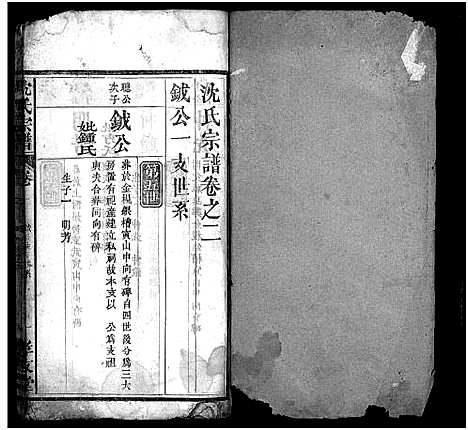 沈氏宗譜卷之二
鉞公一支世系
第五世
聰公次子
鉞公
妣鍾氏
葬於金楊銀槽寅山申向有碑自四世後分爲三大
房置有祀產建立私祠故本支以 公爲支祖
與夫合葬同向有碑
生子一 明芳
沈氏宗譜 卷